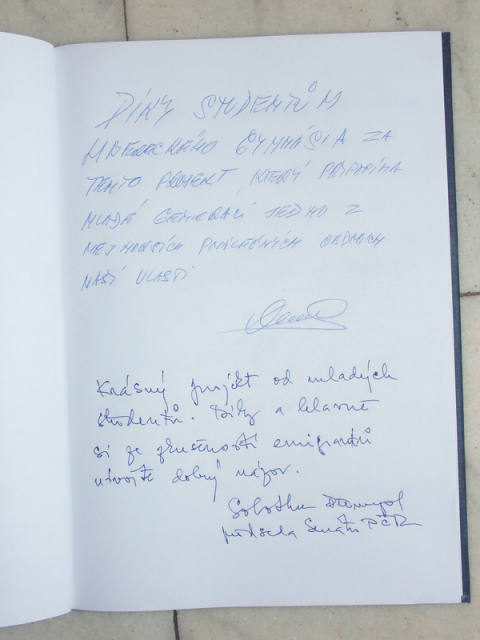 DÍKY STUDENTŮM
LIBERECKÉHO GYMNÁSIA ZA
TENTO PROJEKT, KTERÝ PŘIPOMÍNÁ
MLADÉ GENERACI JEDNO Z
NEJHORŠÍCH POVÁLEČNÝCH OBDOBÍ
NAŠÍ VLASTI
Krásný projekt od mladých
studentů. Díky a hlavně
si ze zkušeností emigrantů
utvořte dobrý názor.
Sobotka Přemysl
předseda Senátu PČR